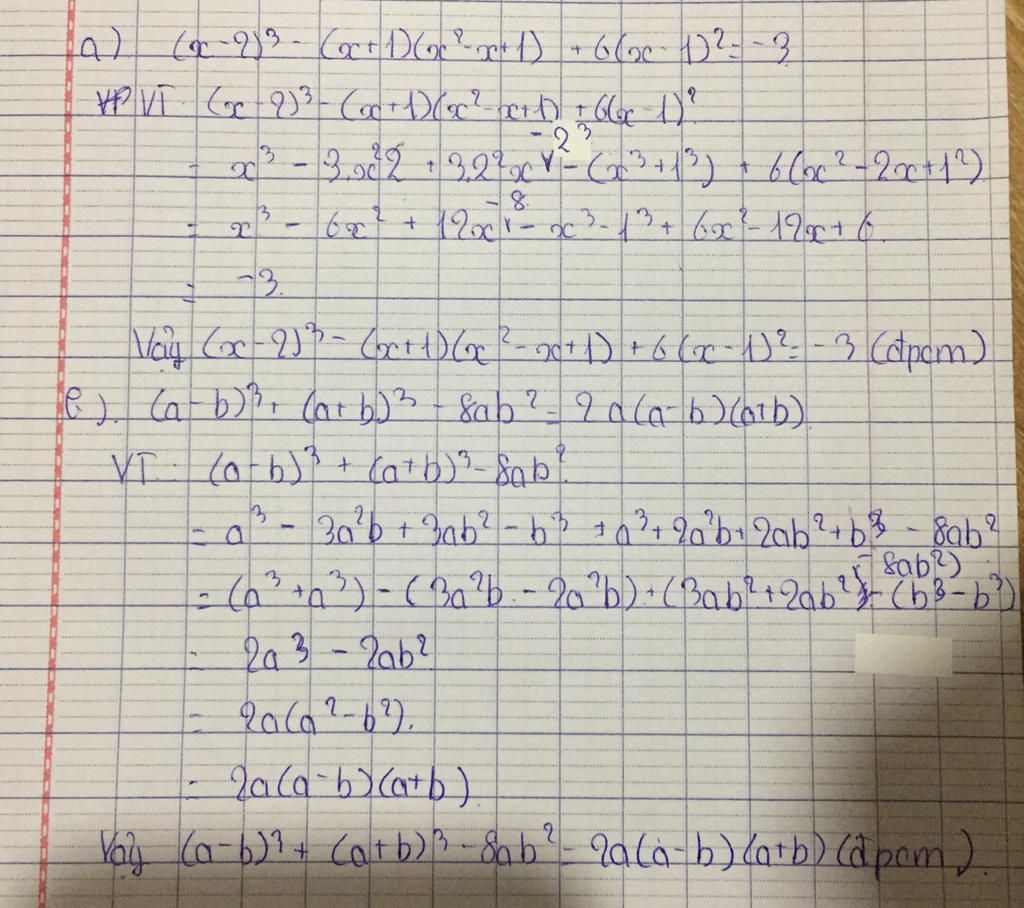 a) (x-2)³ - (x+1)(x²-x+1) + 6(x-1)² = -3
VP VT: (x-2)³ - (x+1)(x²-x+1) + 6(x-1)²
= x³ - 3.x²2 + 3.2²x - 2³ - (x³+1³) + 6(x²-2x+1²)
= x³ - 6x² + 12x - 8 - x³ - 1³ + 6x² - 12x + 6
= -3.
Vậy (x-2)³ - (x+1)(x²-x+1) + 6(x-1)² = -3 (đpcm)
e). (a-b)³ + (a+b)³ - 8ab² = 2a(a-b)(a+b).
VT: (a-b)³ + (a+b)³ - 8ab²
= a³ - 3a²b + 3ab² - b³ + a³ + 2a²b + 2ab² + b³ - 8ab²
= (a³+a³) - (3a²b - 2a²b) + (3ab² + 2ab² - 8ab²) - (b³ - b³)
= 2a³ - 2ab²
= 2a(a²-b²).
= 2a(a-b)(a+b)
Vậy (a-b)³ + (a+b)³ - 8ab² = 2a(a-b)(a+b) (đpcm)